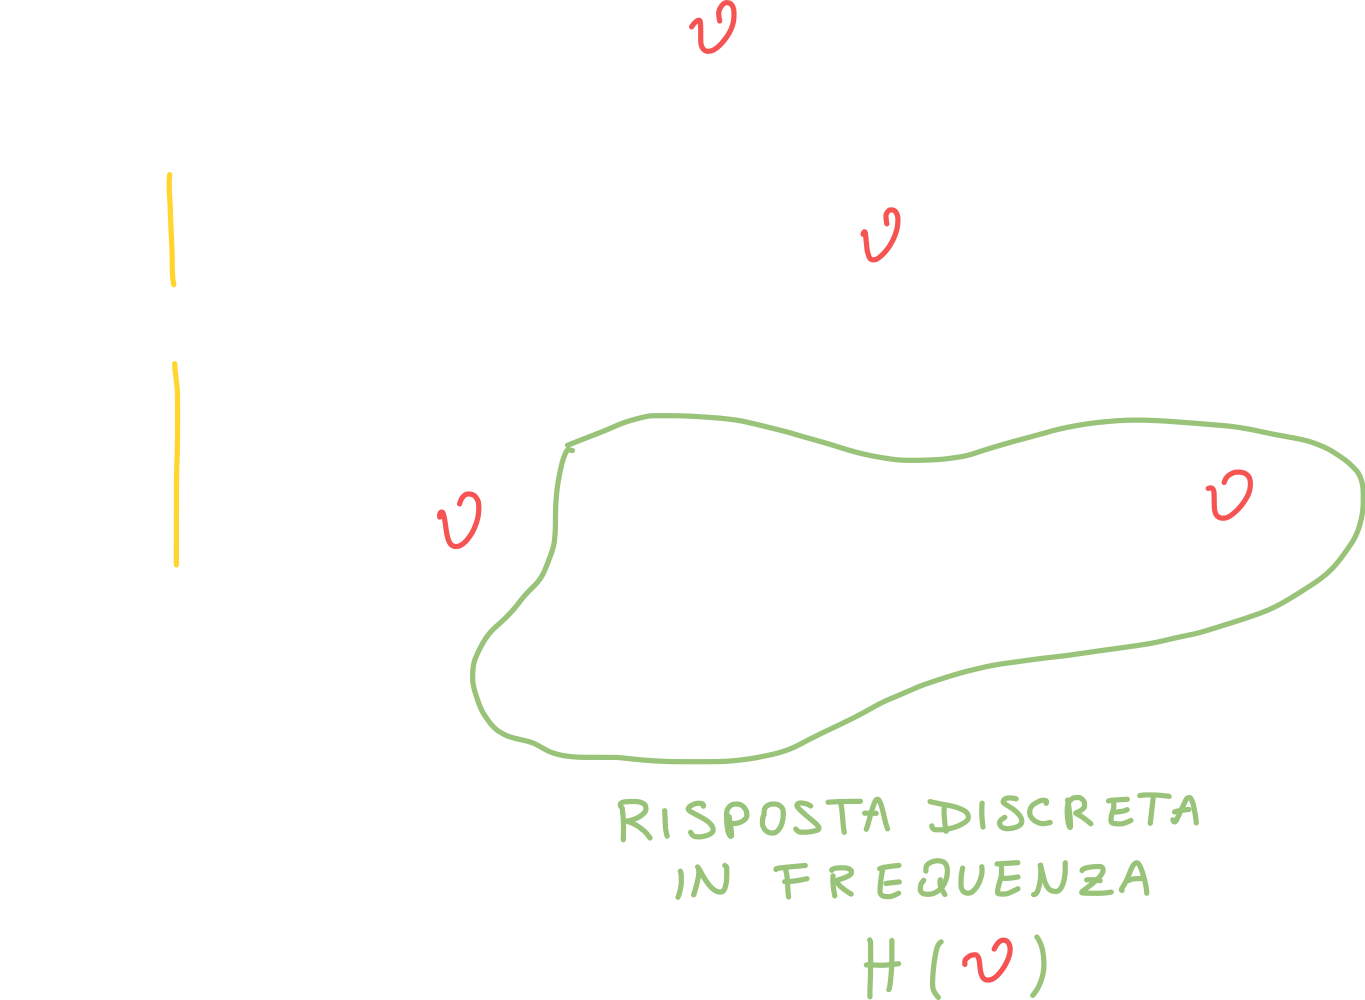 ν
ν
ν
ν
RISPOSTA DISCRETA
IN FREQUENZA
H(ν)